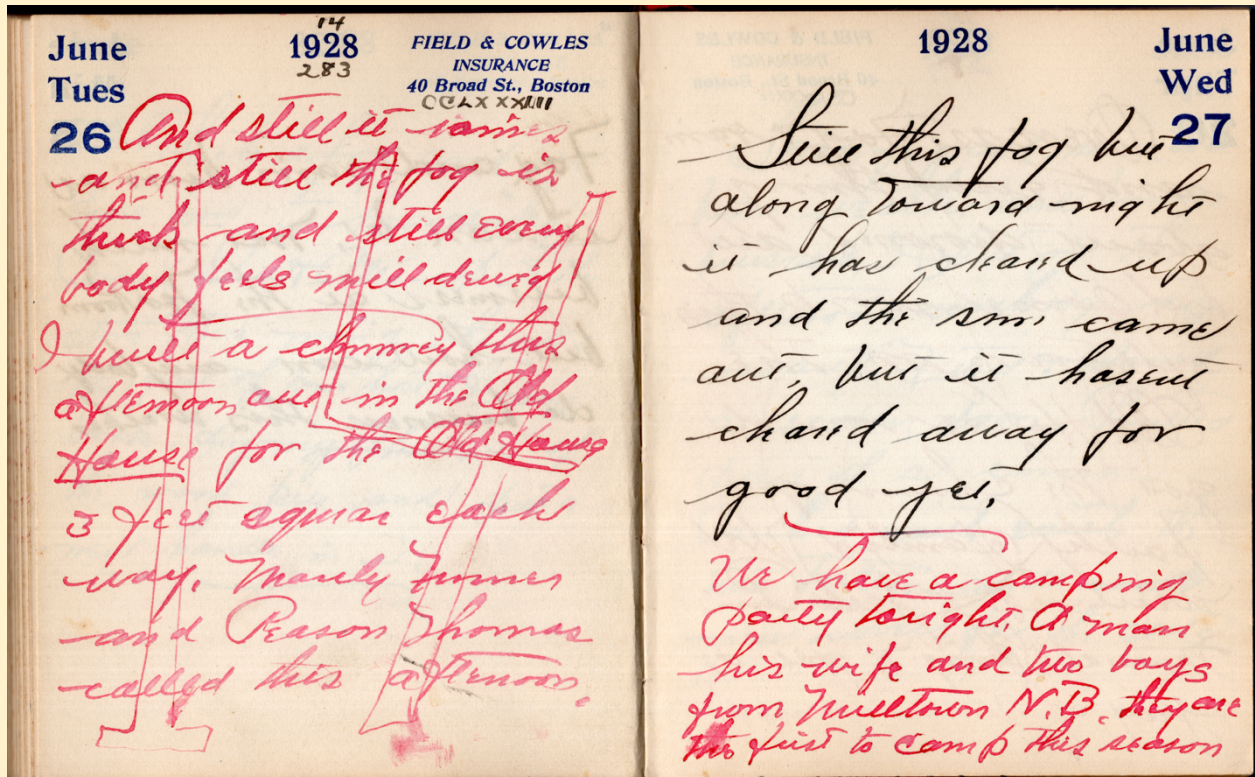 June
Tues
26
14
1928
283
FIELD & COWLES
INSURANCE
40 Broad St., Boston
CCLXXXIII
And still it raines
and still the fog is
thick and still every
body feels mill dewed
I built a chimney this
afternoon out in the Old
House for the Old House
3 feet square each
way. Manly Turner
and Reason Thomas
called this afternoon.
1928
June
Wed
27
Still this fog but
along toward night
it has cleared up
and the sun came
out, but it hasent
cleared away for
good yet.
We have a camping
party tonight. A man
his wife and two boys
from Milltown N.B. they are
the first to camp this season